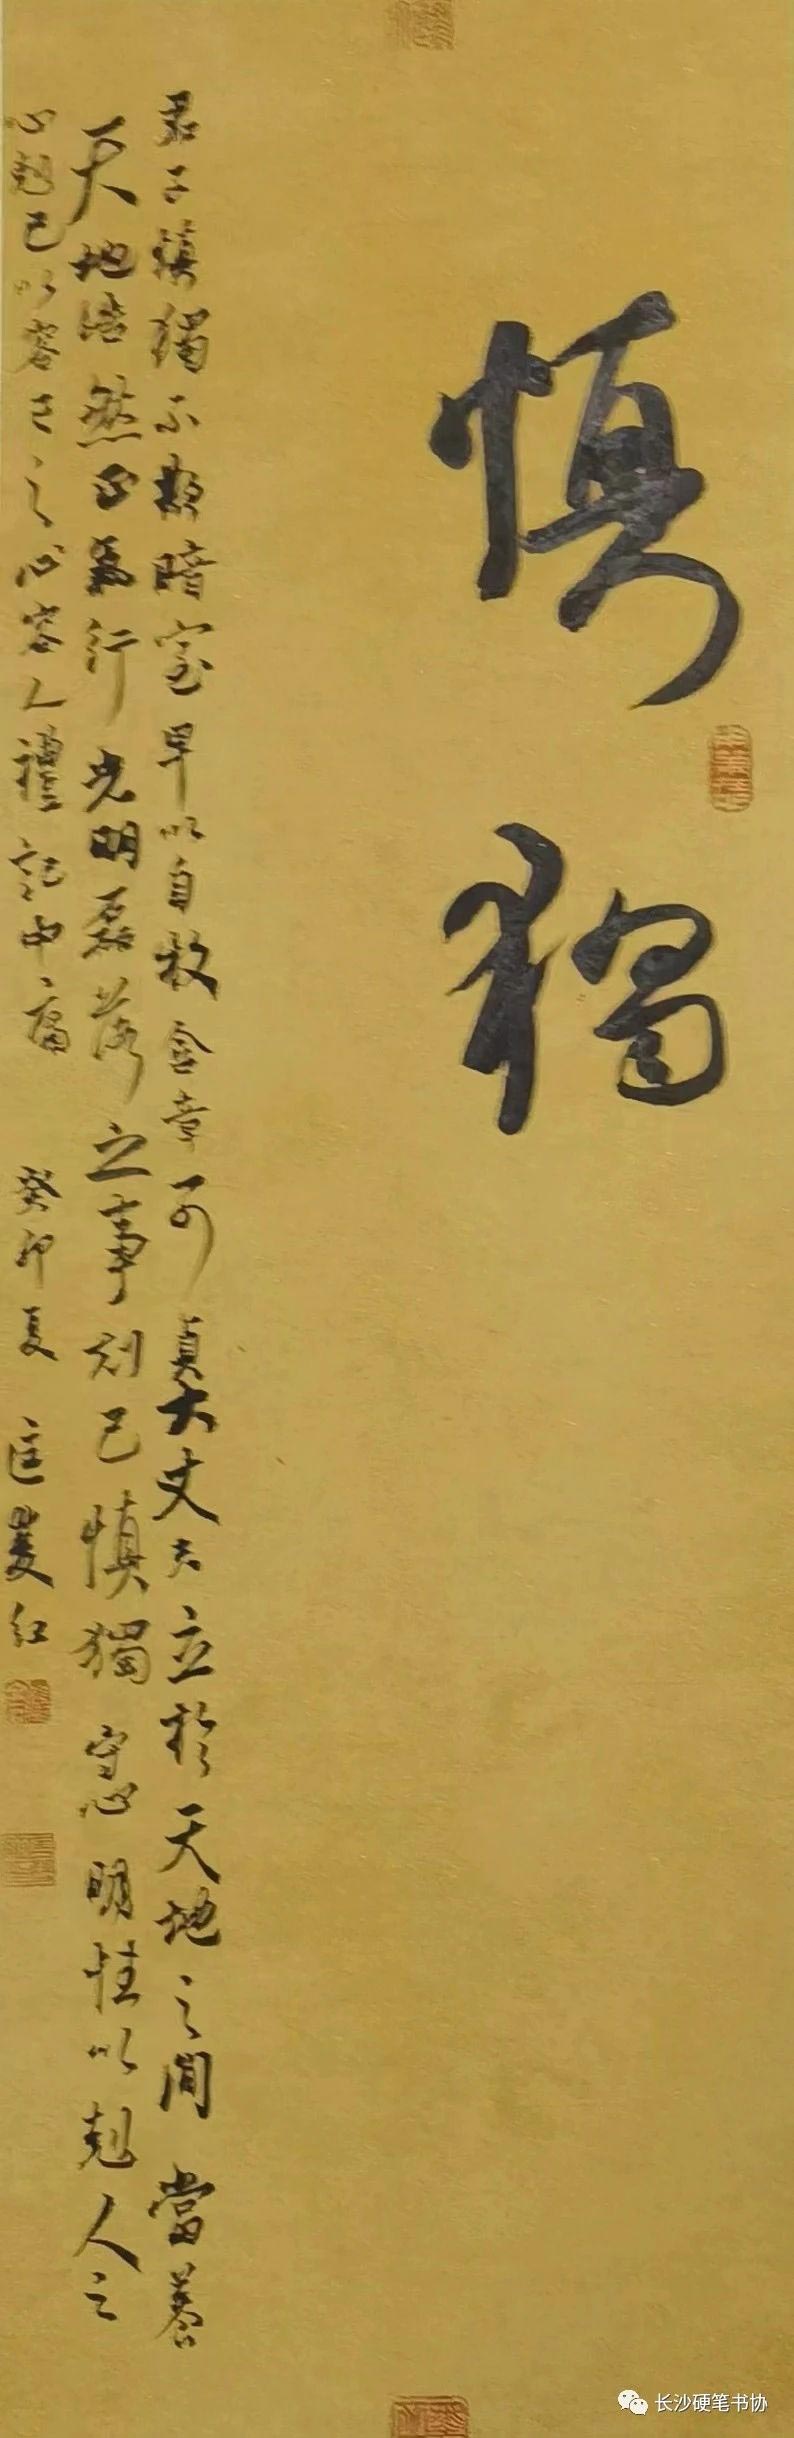 慎獨
君子慎獨不欺暗室卑以自牧含章可貞大丈夫立於天地之間當養
天地浩然正氣行光明磊落之事剋己慎獨守心明性以剋人之
心剋己以容己之心容人禮記中庸 癸卯夏 匡夏红
长沙硬笔书协